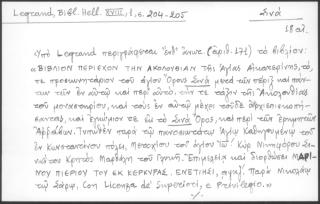 Legrand, Bibl. Hell. XVIII, 1, σ. 204-205
Σινᾶ
18 αἰ.
«Ὑπὸ Legrand περιγράφεται ἐνθ' ἄνωτ. (ἀριθ. 171) τὸ βιβλίον:
«ΒΙΒΛΙΟΝ ΠΕΡΙΕΧΟΝ ΤΗΝ ΑΚΟΛΟΥΘΙΑΝ τῆς Ἁγίας Αἰκατερίνης, τό,
τε προσκυνητάριον τοῦ ἁγίου Ὄρους Σινᾶ μετὰ τῶν πέριξ καὶ πάν-
των τῶν ἐν αὐτῷ καὶ περὶ αὐτό. τήν τε τάξιν τῆς Ἀκολουθίας
τοῦ μοναστηρίου, καὶ τοὺς ἐν αὐτῷ μέχρι τοῦδε ἀρχιεπισκοπή-
σαντας, καὶ ἐγκώμιόν τι εἰς τὸ Σινᾶ Ὄρος, καὶ περὶ τῶν
Ἀράβων. Τυπωθὲν παρὰ τῷ πανοσιωτάτῳ Ἁγίῳ Καθηγουμένῳ τοῦ
ἐν Κωνσταντίνου πόλει, Μετοχίου τοῦ ἁγίου Κυρ Νικηφόρου
Κρητὸς Μαρθάλη τοῦ Γλυκῆ. Ἐπιμελείᾳ καὶ διορθώσει ΜΑΡΙ-
ΝΟΥ ΠΙΕΡΙΟΥ ΤΟΥ ΕΚ ΚΕΡΚΥΡΑΣ. ΕΝΕΤΙΗΣΙ, Παρὰ Νικολάῳ
τῷ Σάρῳ. Con Licenza de' Superiori, e Privilegio.»